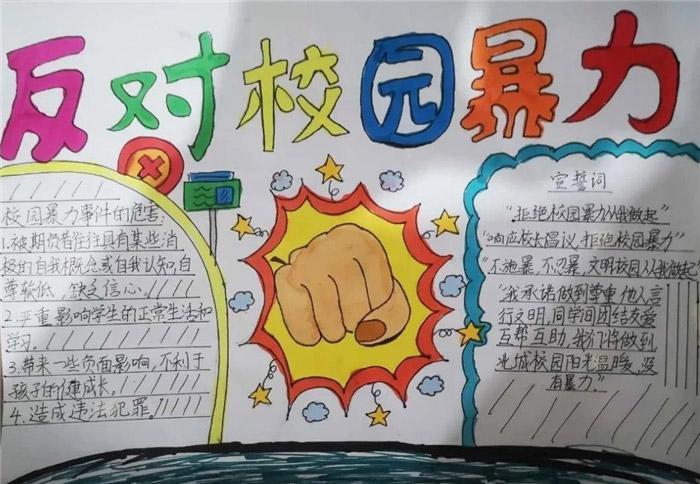 反对校园暴力
校园暴力事件的危害:
1.被期负者往往具有某些消
极的自我概念或自我认知,自
尊较低,缺乏信心.
2.严重影响学生的正常生活和
学习.
3.带来一些负面影响,不利于
孩子的健成长。
4.造成违法犯罪。
宣誓词
“拒绝校园暴力从我做起”
“响应校长倡议,拒绝校园暴力”
“不施暴、不忍暴,文明校园从我做起”
“我承诺做到尊重他人言
行文明,同学间团结友爱
互帮互助.我们将做到
让城校园阳光温暖,没
有暴力.”